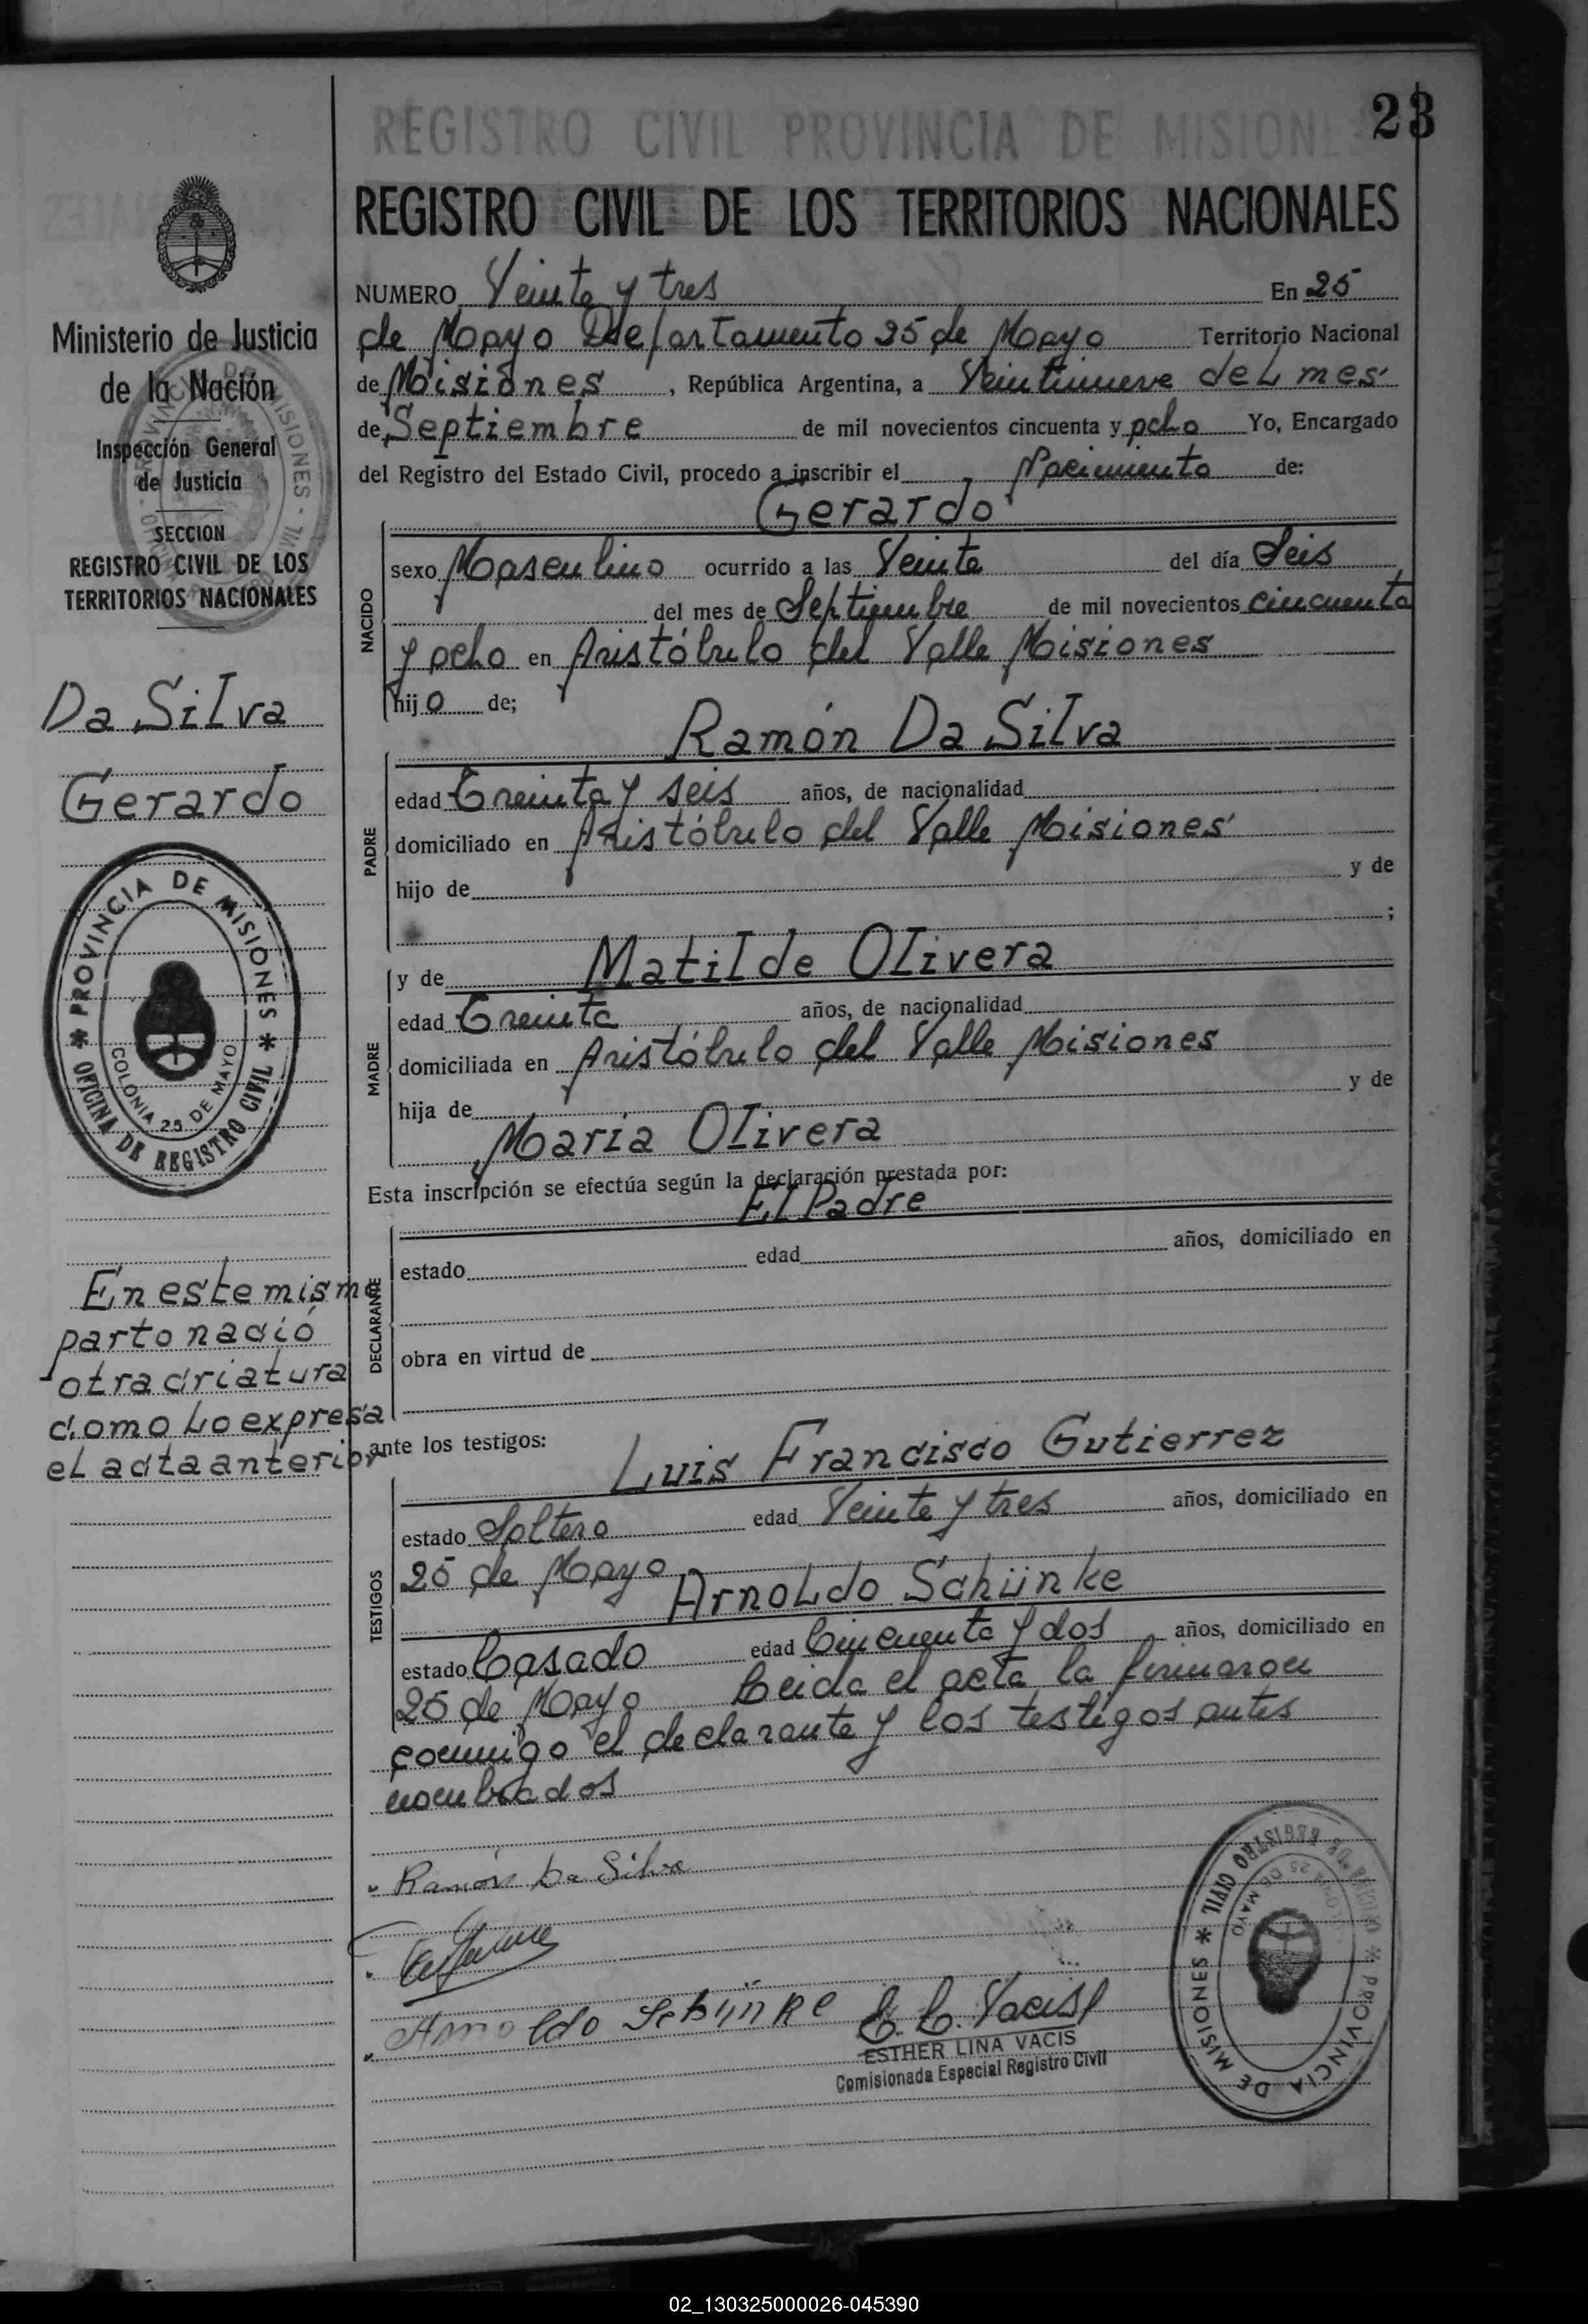 23
REGISTRO CIVIL PROVINCIA DE MISION
REGISTRO CIVIL DE LOS TERRITORIOS NACIONALES
NUMERO Veinte y tres En 25
de Mayo Departamento 25 de Mayo Territorio Nacional
de Misiones, República Argentina, a Veintinueve del mes
de Septiembre de mil novecientos cincuenta y ocho Yo, Encargado
del Registro del Estado Civil, procedo a inscribir el Nacimiento de:
Gerardo
NACIDO
sexo Masculino ocurrido a las Veinte del día Seis
del mes de Septiembre de mil novecientos cincuenta
y ocho en Aristóbulo del Valle Misiones
hijo de;
Ramón Da Silva
PADRE
edad Treinta y seis años, de nacionalidad
domiciliado en Aristóbulo del Valle Misiones
hijo de y de
;
y de Matilde Olivera
MADRE
edad Treinta años, de nacionalidad
domiciliada en Aristóbulo del Valle Misiones
hija de y de
María Olivera
Esta inscripción se efectúa según la declaración prestada por:
El Padre
DECLARANTE
estado edad años, domiciliado en
obra en virtud de
ante los testigos:
Luis Francisco Gutierrez
TESTIGOS
estado Soltero edad Veinte y tres años, domiciliado en
25 de Mayo
Arnoldo Schünke
estado Casado edad Cincuenta y dos años, domiciliado en
25 de Mayo Leida el acta la firmaron
conmigo el declarante y los testigos antes
nombrados
Ramón Da Silva
Arnoldo Schünke
E. L. Vacis
ESTHER LINA VACIS
Comisionada Especial Registro Civil
PROVINCIA DE MISIONES * OFICINA DE REGISTRO CIVIL *
COLONIA 25 DE MAYO
Ministerio de Justicia
de la Nación
Inspección General
de Justicia
SECCION
REGISTRO CIVIL DE LOS
TERRITORIOS NACIONALES
Da Silva
Gerardo
PROVINCIA DE MISIONES * OFICINA DE REGISTRO CIVIL *
COLONIA 25 DE MAYO
En este mismo
parto nació
otra criatura
como lo expresa
el acta anterior
02_130325000026-045390